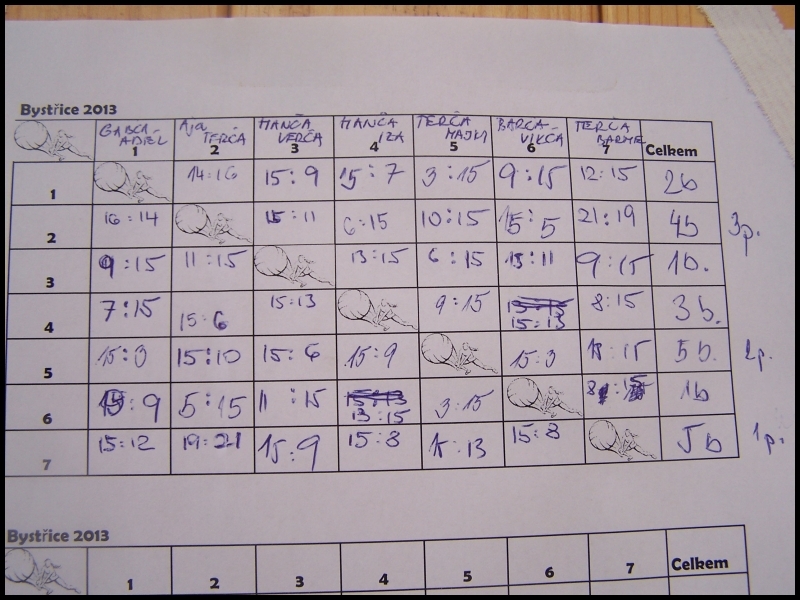 Bystřice 2013
GABČA- AJA HANČA HANČA TERČA BARČA- TERČA
ADÉL TERČA VERČA IZA MAJKI VIKČA
1 2 3 4 5 6 7 Celkem
1 14:16 15:9 15:7 3:15 9:15 12:15 2b
2 16:14 15:11 6:15 10:15 15:5 21:19 4b 3p.
3 9:15 11:15 13:15 6:15 15:11 9:15 1b.
4 7:15 15:6 15:13 9:15 15:13 8:15 3b.
5 15:3 15:10 15:6 15:9 15:3 :15 5b. 2p.
6 15:9 5:15 11:15 13:15 3:15 8:15 1b
7 15:12 19:21 15:9 15:8 15:13 15:8 5b 1p.
Bystřice 2013
1 2 3 4 5 6 7 Celkem